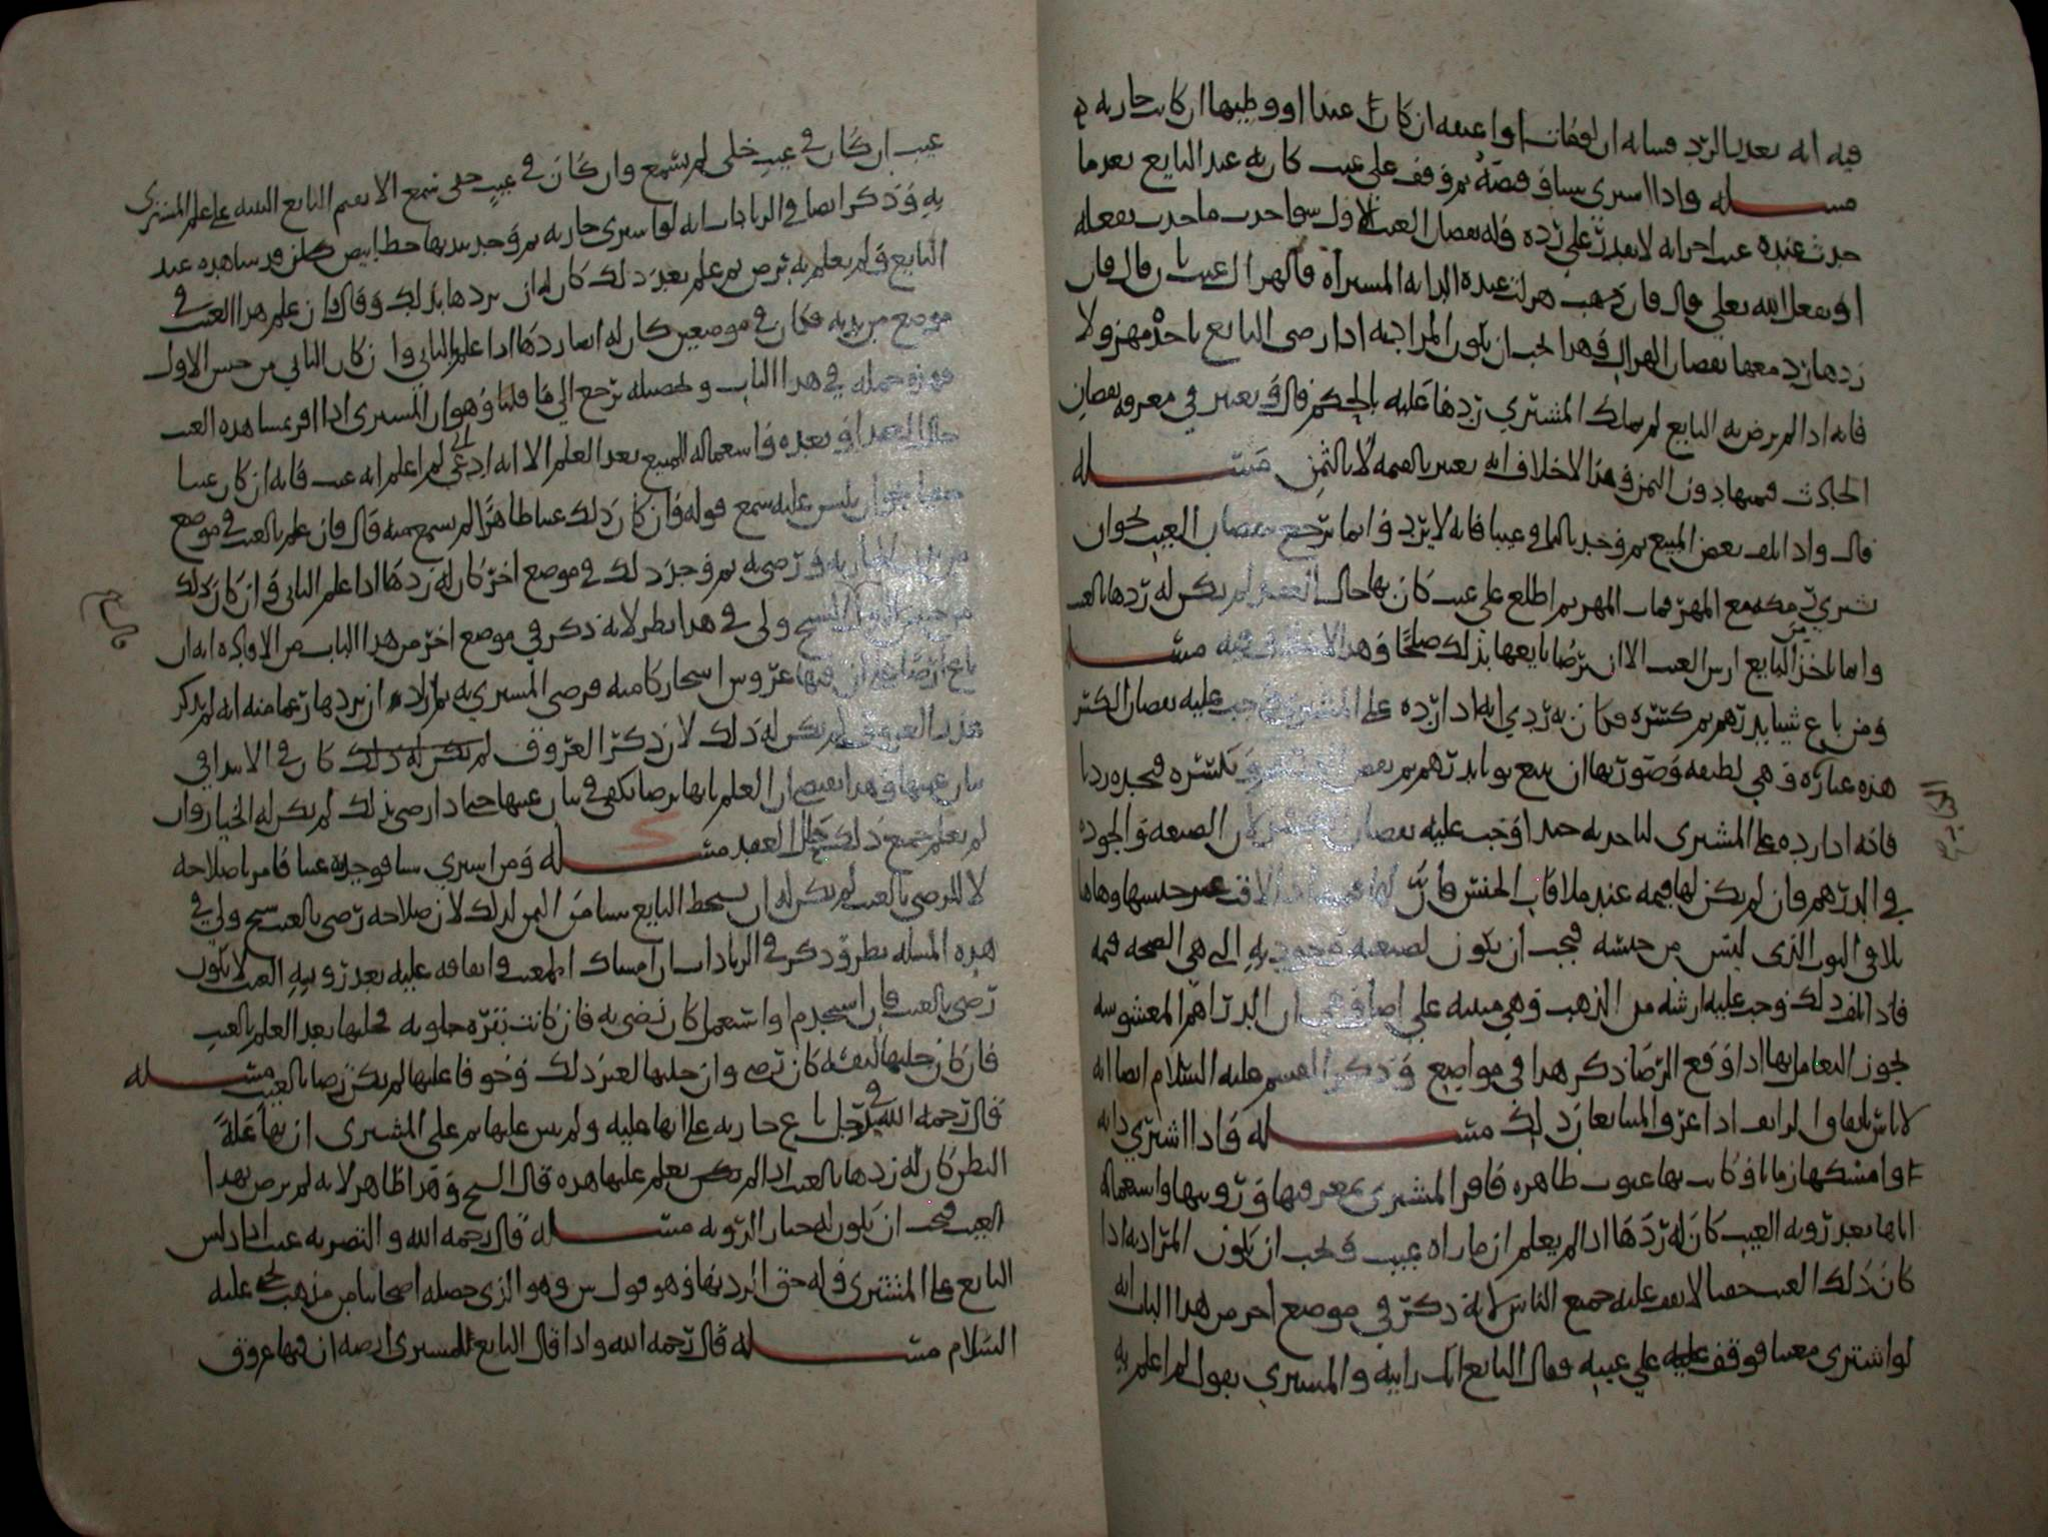 فيه انه بعدنا لرد مسله ان لو مات او اعتقه ان كان عبدا او وطيها ان كانت جاريه
مسله واذا اشترى شيا وقبضه ثم وقف على عيب كان به عند البايع بعد ما
حدث عنده عيب اخر انه لا يقدر على رده وله نقصان العيب الاول سوا حدث ما حدث بفعله
او بفعل الله تعلى قال فان ذهب هزلت عنده الدابه المشتراه فالهزال عيب قال فان
ردها رد معها نقصان الهزال وهذا يجب ان يكون المراد به اذا رضى البايع باخذه مهزولا
فانه اذا لم يرض به البايع لم يملك المشتري ردها عليه بالحكم قال ويعتبر في معرفه نقصان
الحادث قيمتها دون الثمن وهذا لا خلاف انه يعتبر بالقيمه لا بالثمن مسله
قال واذا تلف بعض المبيع ثم وجد بالباقي عيبا فانه لا يرد وانما يرجع بنقصان العيب نحو ان
شرى رمكه مع المهر فمات المهر ثم اطلع على عيب كان بها حال العقد لم يكن له ردها بالعيب
وانما ياخذ من البايع ارش العيب الا ان يرضا بايعها بذلك صلحا وهذا لا خلاف فيه مسله
ومن باع شيا بدرهم ثم كسره فكان به ردي انه اذا رده على المشتري وجب عليه نقصان الكسر
هذه عبارته وهي لطيفه وصورتها ان يبيع ثوبا بدرهم ثم يقبض الدرهم ويكسره فيجده رديا
فانه اذا رده على المشترى لياخذ به جيدا وجب عليه نقصان الكسر لان الصنعه والجوده
في الدرهم وان لم يكن لها قيمه عند ملاقاه الجنس فان لها قيمه اذا لاقت غير جنسها وهاهنا
يلاقي الثوب الذى ليس من جنسه فيجب ان يكون لصنعته وجودته التي هي الصحه قيمه
فاذا تلف ذلك وجب عليه ارشه من الذهب وهي مبنيه على اصله وهي ان الدراهم المغشوشه
يجوز التعامل بها اذا وقع الرضا ذكر هذا في مواضع وذكر القسم عليه السلام ايضا انه
لا باس بانفاق الزايف اذا عرف المتبايعان ذلك مسله واذا اشترى دابه
او امسكها زمانا وكانت بها عيوب ظاهره فاقر المشترى بمعرفتها ورويتها واستعماله
اياها بعد رويه العيب كان له ردها اذا لم يعلم ان ما راه عيب ويجب ان يكون المراد به اذا
كان ذلك العيب خفيا لا يقف عليه جميع الناس لانه ذكر في موضع اخر من هذا الباب انه
لو اشترى معيبا فوقف عليه على عيبه فقال البايع انك رايته والمشتري يقول لم اعلم به
عيب ان كان في عيب جلى لم يسمع وان كان في عيب خفى سمع الا ان يقيم البايع البينه على علم المشترى
به وذكر ايضا في الزيادات انه لو اشترى جاريه ثم وجد بيدها خطا ابيض كان قد شاهده عند
البايع ولم يعلم به برص ثم علم بعد ذلك كان له ان يردها بذلك وقال فان علم هذا العيب في
موضع من بدنه فكان في موضعين كان له ايضا ردها اذا علم بالثاني وان كان الثاني من جنس الاول
فهذه جمله في هذا الباب وتحصيله ترجع الى ما قلنا وهو ان المشترى اذا اقر بمشاهده العيب
حال العقد او بعده واستعماله المبيع بعد العلم الا انه ادعى اني لم اعلم انه عيب فانه ان كان عيبا
خفيا يجوز ان يلتبس عليه سمع قوله وان كان ذلك عيبا ظاهرا لم يسمع منه قال فان علم بالعيب في موضع
من بدن الجاريه ورضى به ثم وجد ذلك في موضع اخر كان له ردها اذا علم الثاني وان كان ذلك
من جنس الاول الشيخ ولي في هذا نظر لانه ذكر في موضع اخر من هذا الباب من الافاده انه ان
باع ارضا على ان فيها عروق اشجار كامنه فرضى المشترى به ثم اراد ان يردها زعما منه انه لم يذكر
قدر العروق لم يكن له ذلك لان ذكر العروق لم يكن له ذلك كان في الابتدا في
بيان عيبها وهذا يقتضى ان العلم بانها برصا يكفى في بيان عيبها حتى اذا رضى بذلك لم يكن له الخيار وان
لم يعلم جميع ذلك حال العقد مسله ومن اشترى شيا فوجد به عيبا فامر باصلاحه
لا للرضى بالعيب لم يكن له ان يستحط البايع شيا من الثمن لذلك لان صلاحه رضى بالعيب الشيخ ولي في
هذه المسله نظر وذكر في الزيادات ان امساك المعيب وانفاقه عليه بعد رويه العيب لا يكون
رضى بالعيب فان استخدم او استعمل كان رضى به فان كانت بقره حلوبه فحلبها بعد العلم بالعيب
فان كان حلبها لنفسه كان رضى وان حلبها لغير ذلك وخوفا عليها لم يكن رضا بالعيب مسله
قال رحمه الله في رجل باع جاريه على انها عليله ولم يبين علتها ثم علم المشترى ان بها علة
البطن كان له ردها بالعيب اذا لم يكن يعلم علتها هذه قال الشيخ وهذا ظاهر لانه لم يرض بهذا
العيب فيجب ان يكون له خيار الرويه مسله قال رحمه الله والتصريه عيب اذا دلس
البايع على المشترى وله حق الرد بها وهو قول ش وهو الذى حصله اصحابنا من مذهب يحيى عليه
السلام مسله قال رحمه الله واذا قال البايع للمشترى ارضه ان فيها عروق